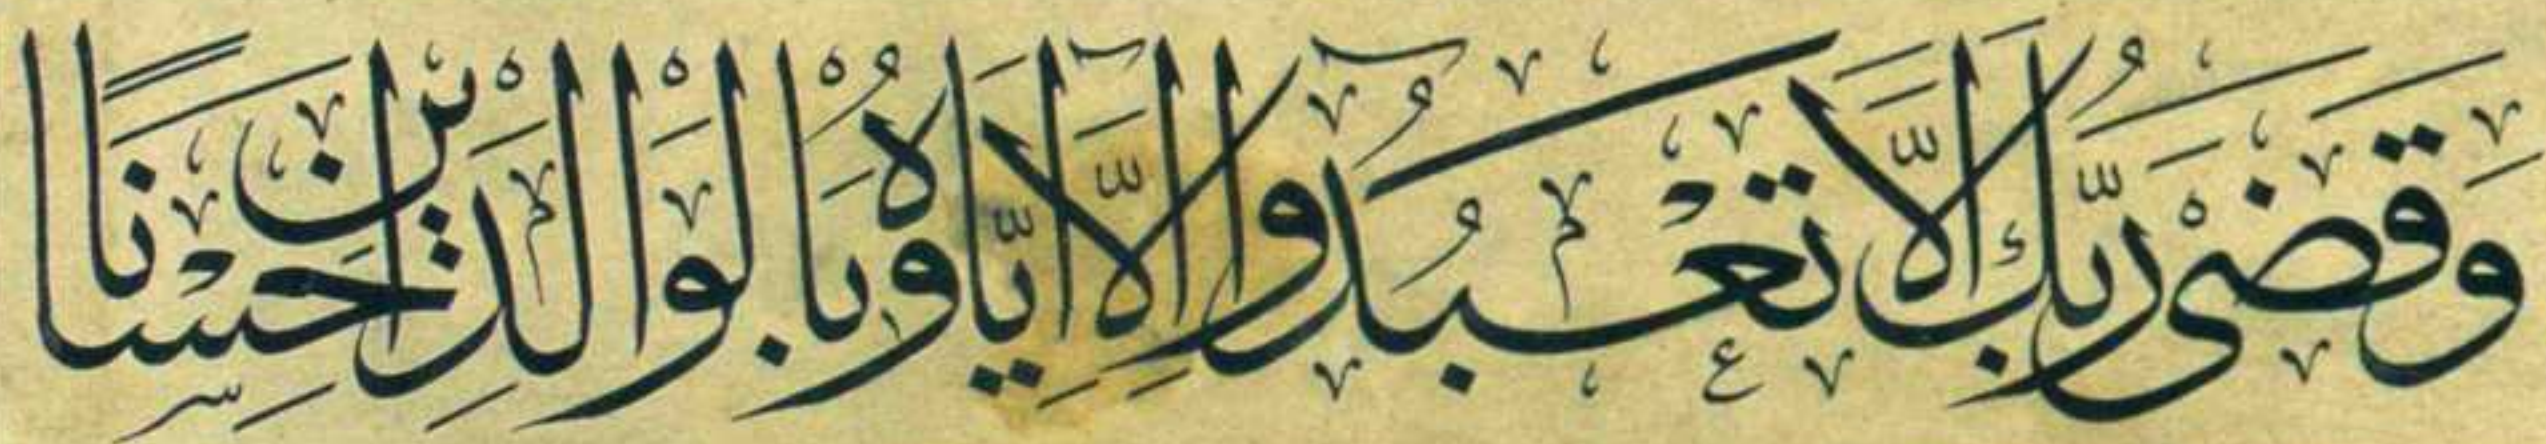 وَقَضٰى رَبُّكَ اَلَّا تَعْبُدُٓوا اِلَّٓا اِيَّاهُ وَبِالْوَالِدَيْنِ اِحْسَانًا